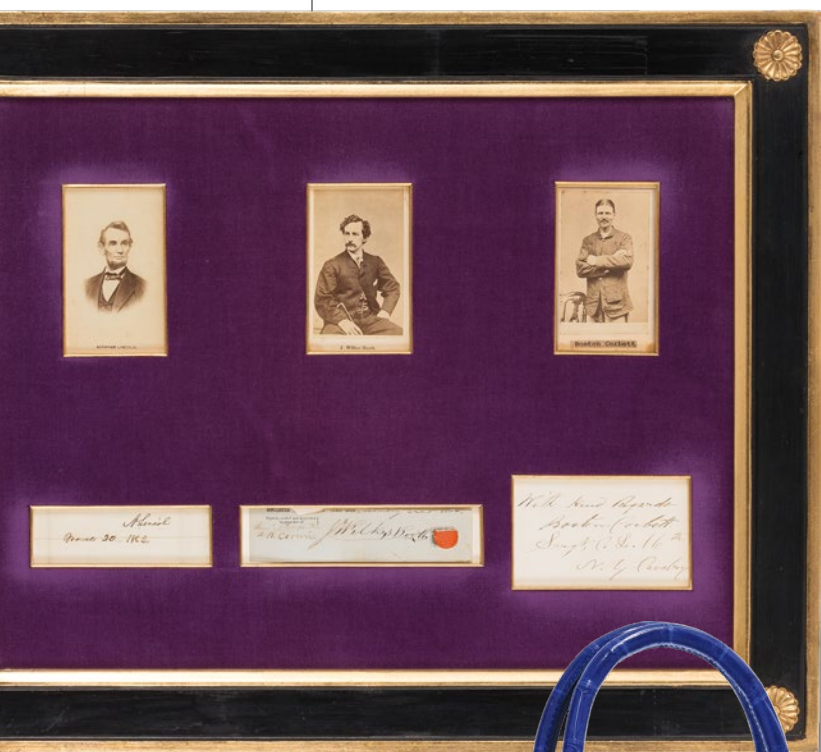 ABRAHAM LINCOLN.
J. Wilkes Booth.
Boston Corbett
A. Lincoln
J. Wilkes Booth
With kind Regards
Boston Corbett
Sergt. Co. L. 16th
N. Y. Cavalry